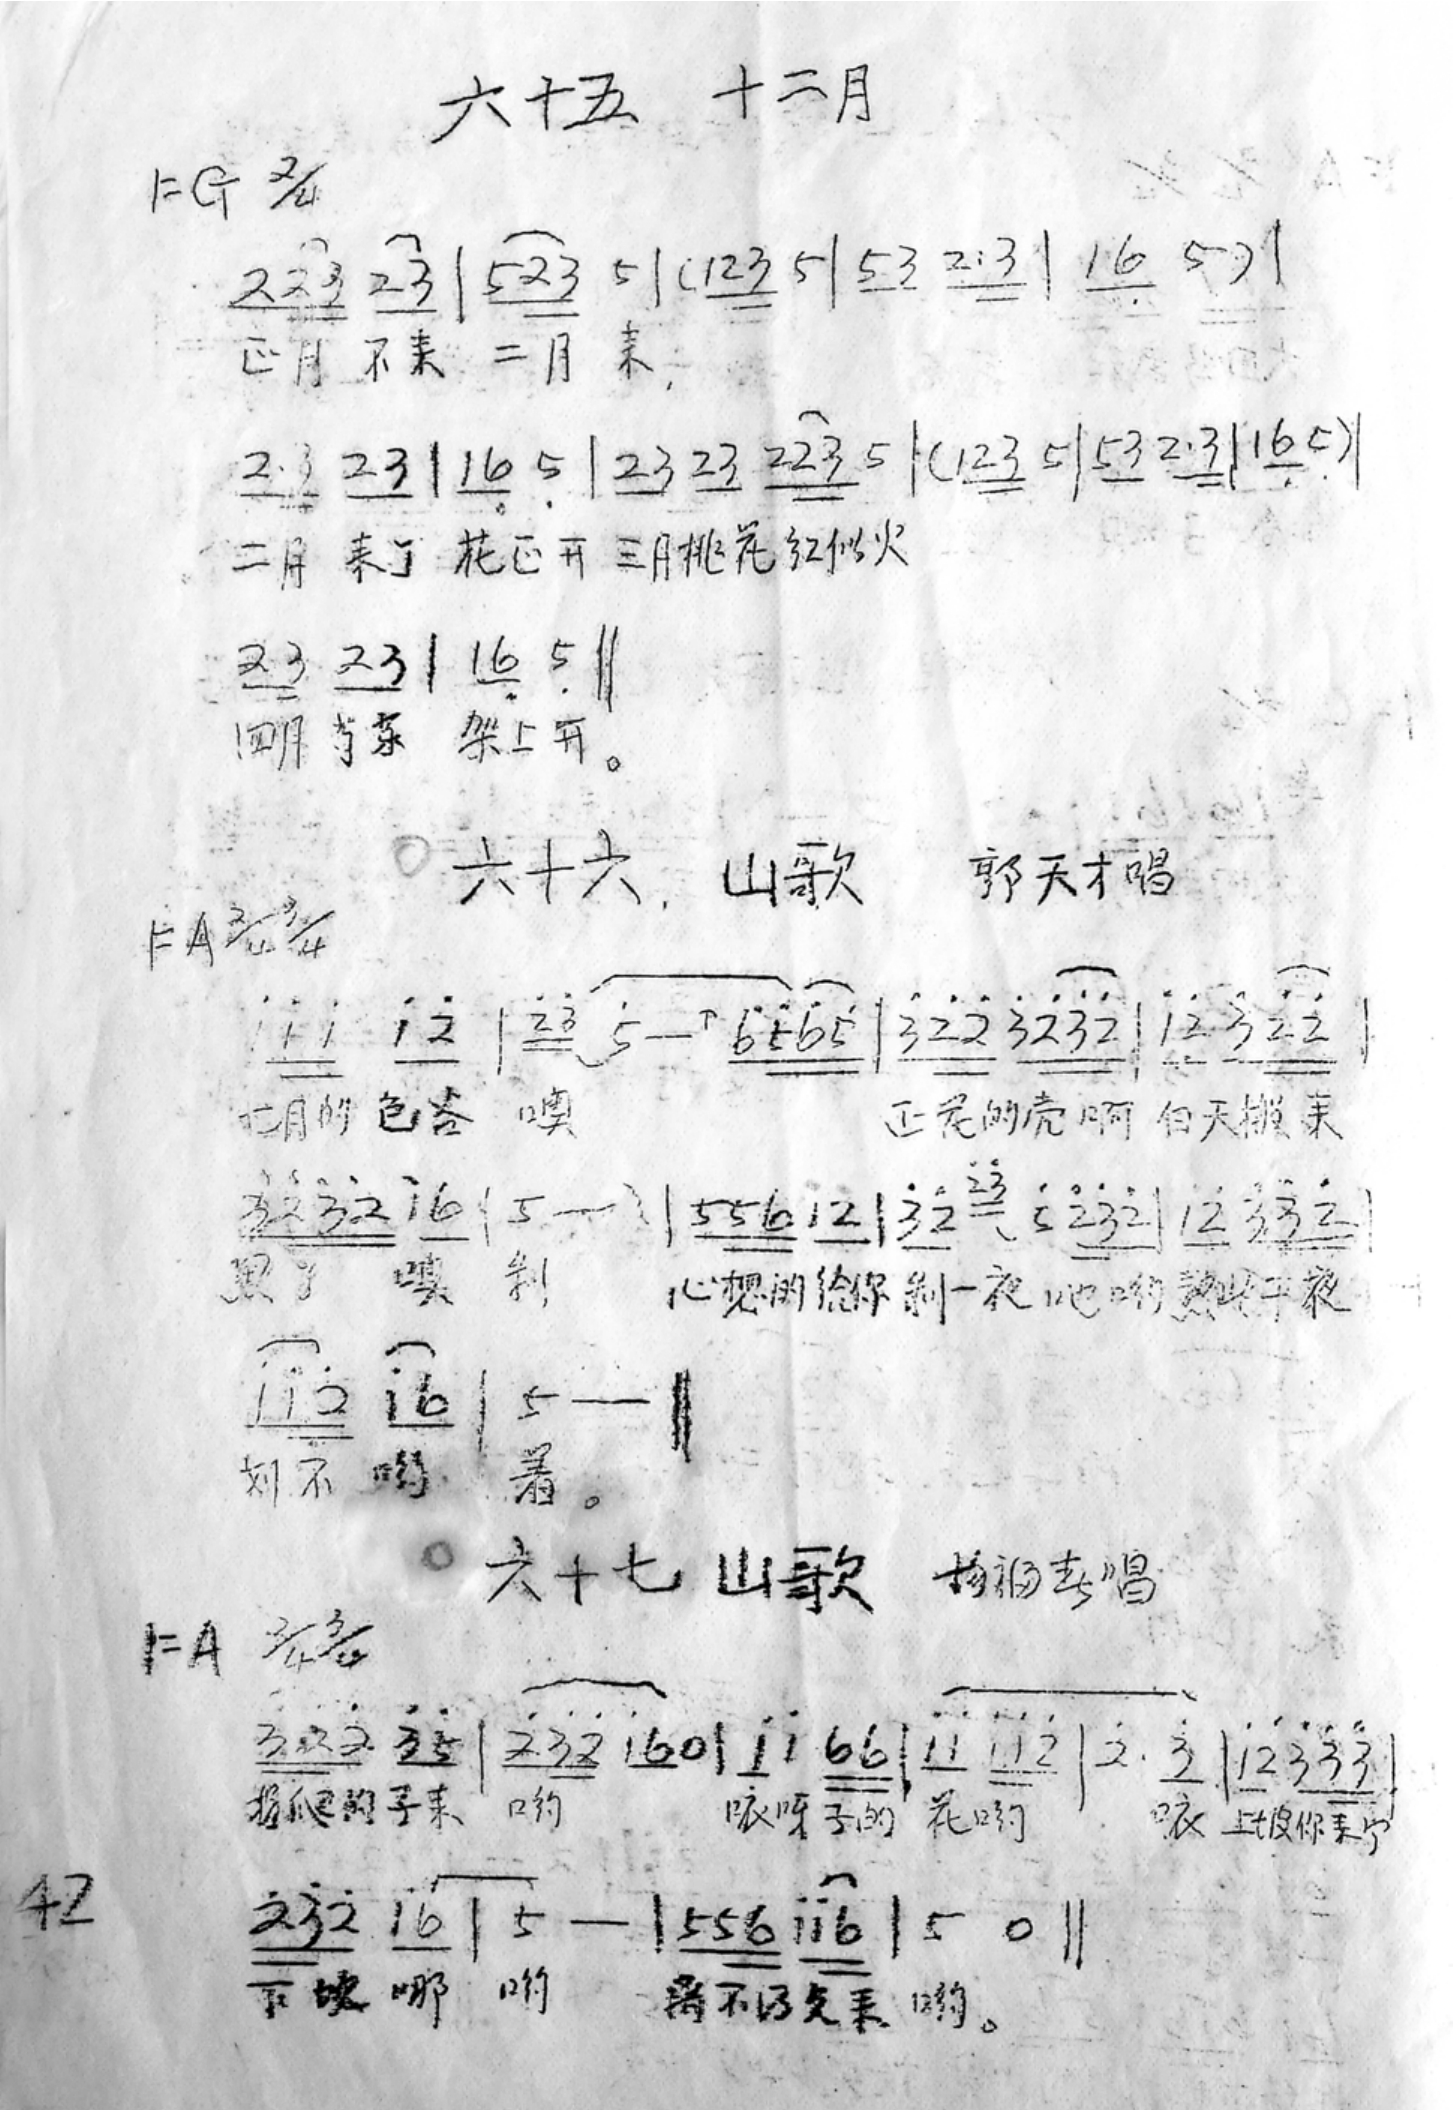 六十五 十二月
1=G 2/4
2 2 3 2 3 | 5 2 3 5 | (1 2 3 5 | 5 3 2·3 | 1 6 5) |
正月 不来 二月 来,
2·3 2 3 | 1 6 5 | 2 3 2 3 2 2 3 5 | (1 2 3 5 | 5 3 2·3 | 1 6 5) |
二月 来了 花正开 三月桃花红似火
2 3 2 3 | 1 6 5 ‖
四月 架上开。
六十六. 山歌 郭天才唱
1=A 2/4 3/4
1 1 1 1 2 | 2 3 5 — ↑ 6 5 6 5 | 3 2 2 3 2 3 2 | 1 2 3 2 2 |
七月的 包谷 噢 正花的壳啊 白天搬来
3 2 3 2 1 6 | 5 — ) | 5 5 6 1 2 | 3 2 2 3 5 2 3 2 | 1 2 3 3 2 |
黑了 噢 剥 心想的给你剥一夜 哟 夜
1 1 2 1 6 | 5 — ‖
划不 哟 着。
六十七 山歌 福寿唱
1=A 2/4 3/4
3 2 2 3 5 | 2 3 2 1 6 0 | 1 1 6 6 | 1 1 1 1 2 | 2· 3 | 1 2 3 3 3 |
子来 哟 咳呀子的 花哟 咳 上坡你来
2 3 2 1 6 | 5 — | 5 5 6 1 1 6 | 5 0 ‖
下坡 哪 哟 不得 来 哟。
42